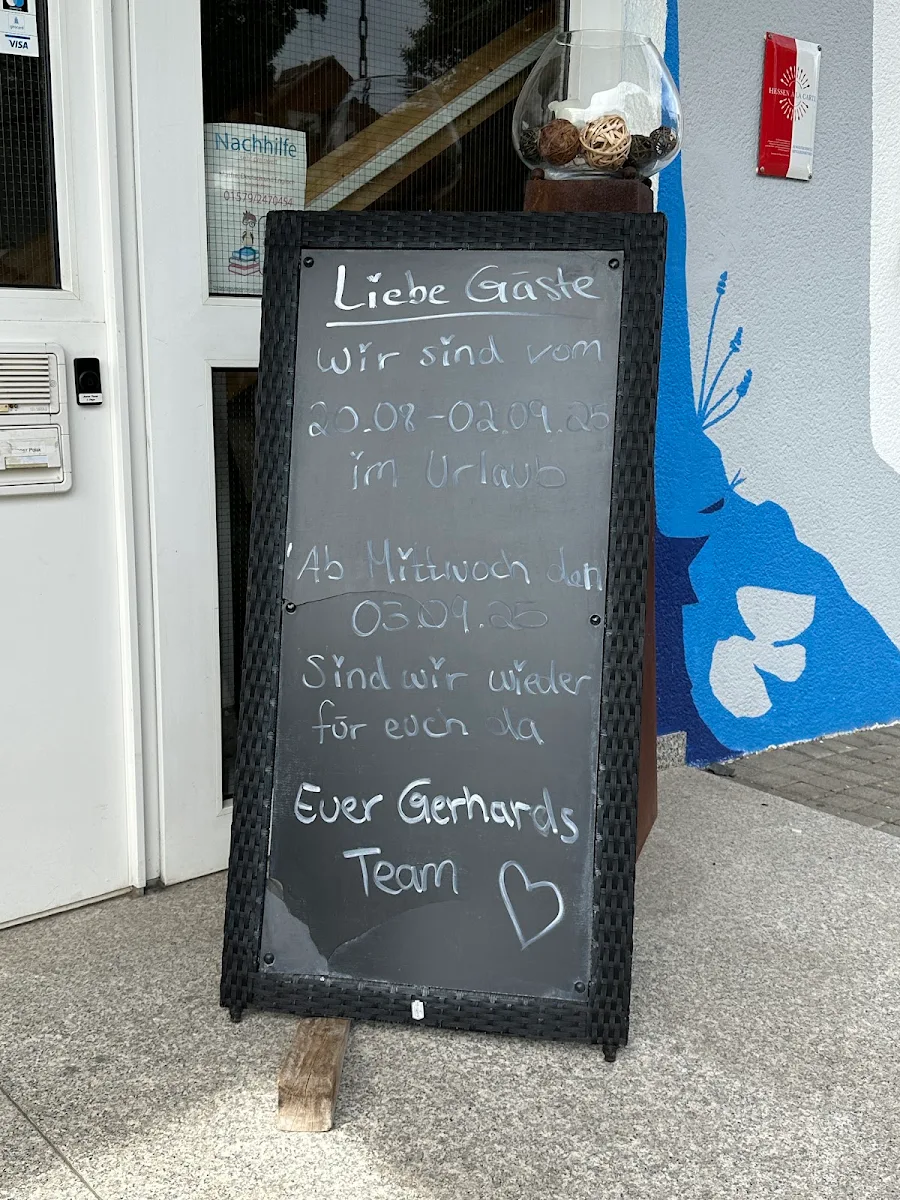 VISA
Nachhilfe
01579/2470454
HESSEN A LA CARTE
Liebe Gäste
Wir sind vom
20.08-02.09.25
im Urlaub
Ab Mittwoch den
03.09.25
Sind wir wieder
für euch da
Euer Gerhards
Team